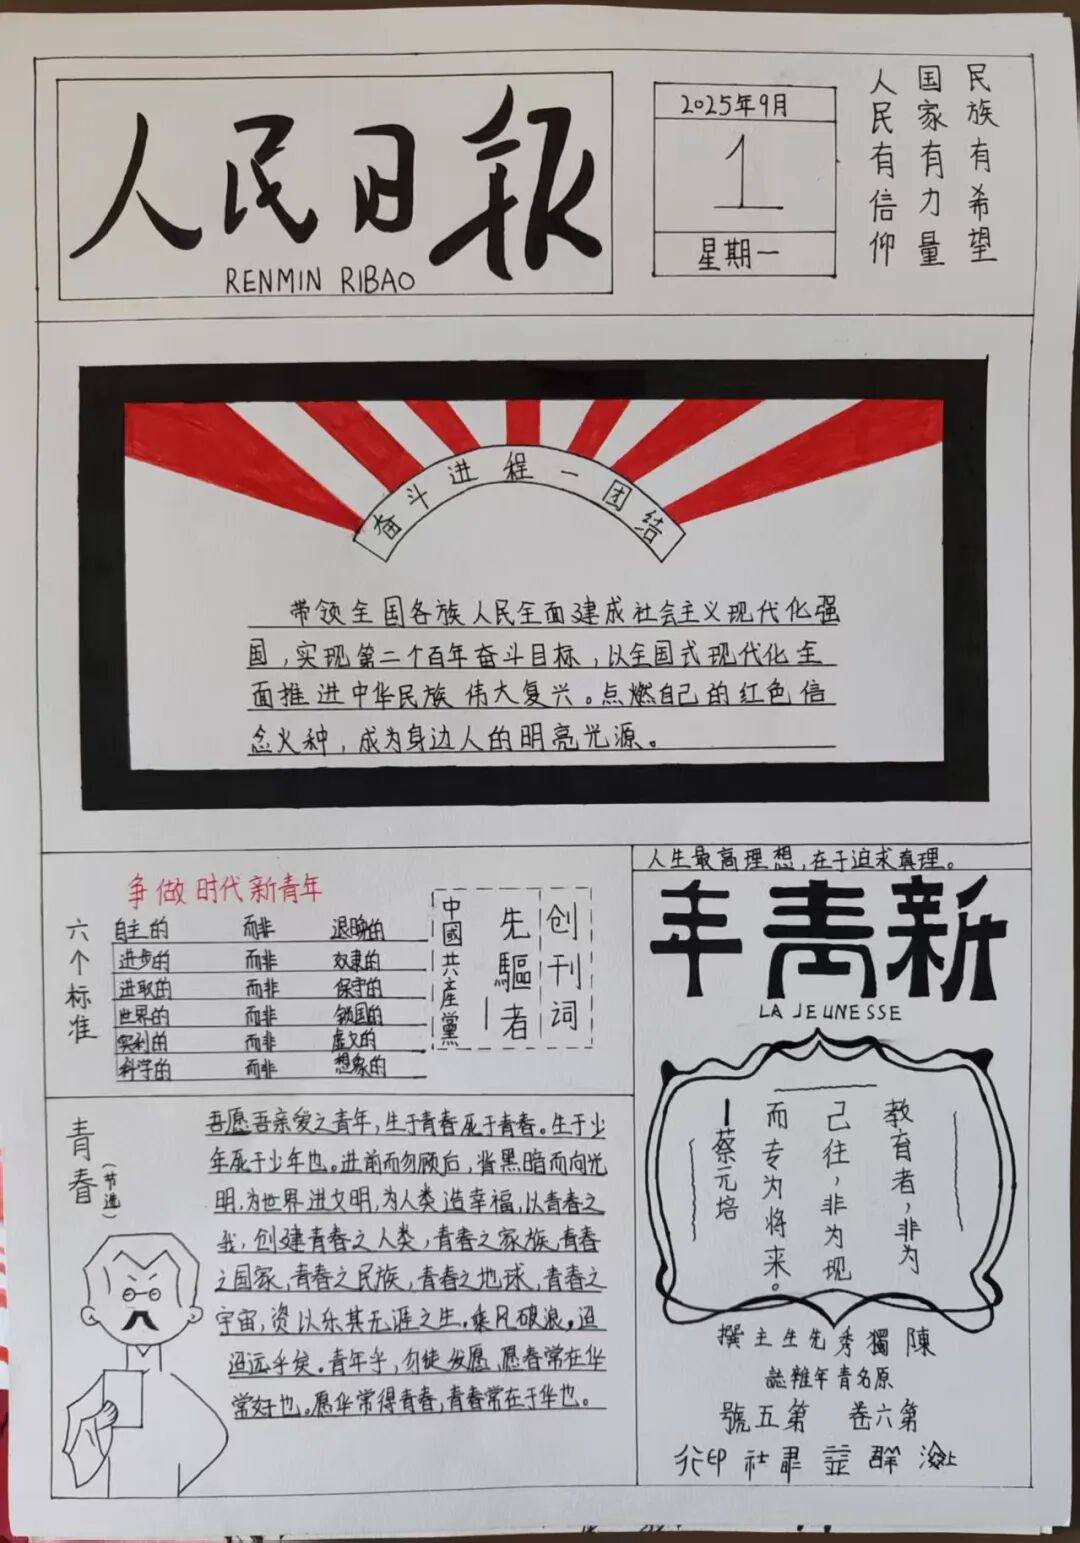 人民日报
RENMIN RIBAO
2025年9月
1
星期一
民族有希望
国家有力量
人民有信仰
奋斗进程一团结
带领全国各族人民全面建成社会主义现代化强
国，实现第二个百年奋斗目标，以全国式现代化全
面推进中华民族伟大复兴。点燃自己的红色信
念火种，成为身边人的明亮光源。
争做时代新青年
六个标准
自主的 而非 退晚的
进步的 而非 奴隶的
进取的 而非 保守的
世界的 而非 锁国的
实利的 而非 虚文的
科学的 而非 想象的
创刊词
先驅者
中國共産黨
青春
（节选）
吾愿吾亲爱之青年，生于青春死于青春。生于少
年死于少年也。进前而勿顾后，背黑暗而向光
明，为世界进文明，为人类造幸福，以青春之
我，创建青春之人类，青春之家族，青春
之国家，青春之民族，青春之地球，青春之
宇宙，资以乐其无涯之生。乘风破浪。迢
迢远乎矣。青年乎，勿徒发愿，愿春常在华
常好也。愿华常得青春，青春常在于华也。
人生最高理想，在于追求真理。
新青年
LA JEUNESSE
教育者，非为
己往，非为现
而专为将来。
一蔡元培
陳獨秀先生主撰
原名青年雜誌
第六卷 第五號
上海群益書社印行